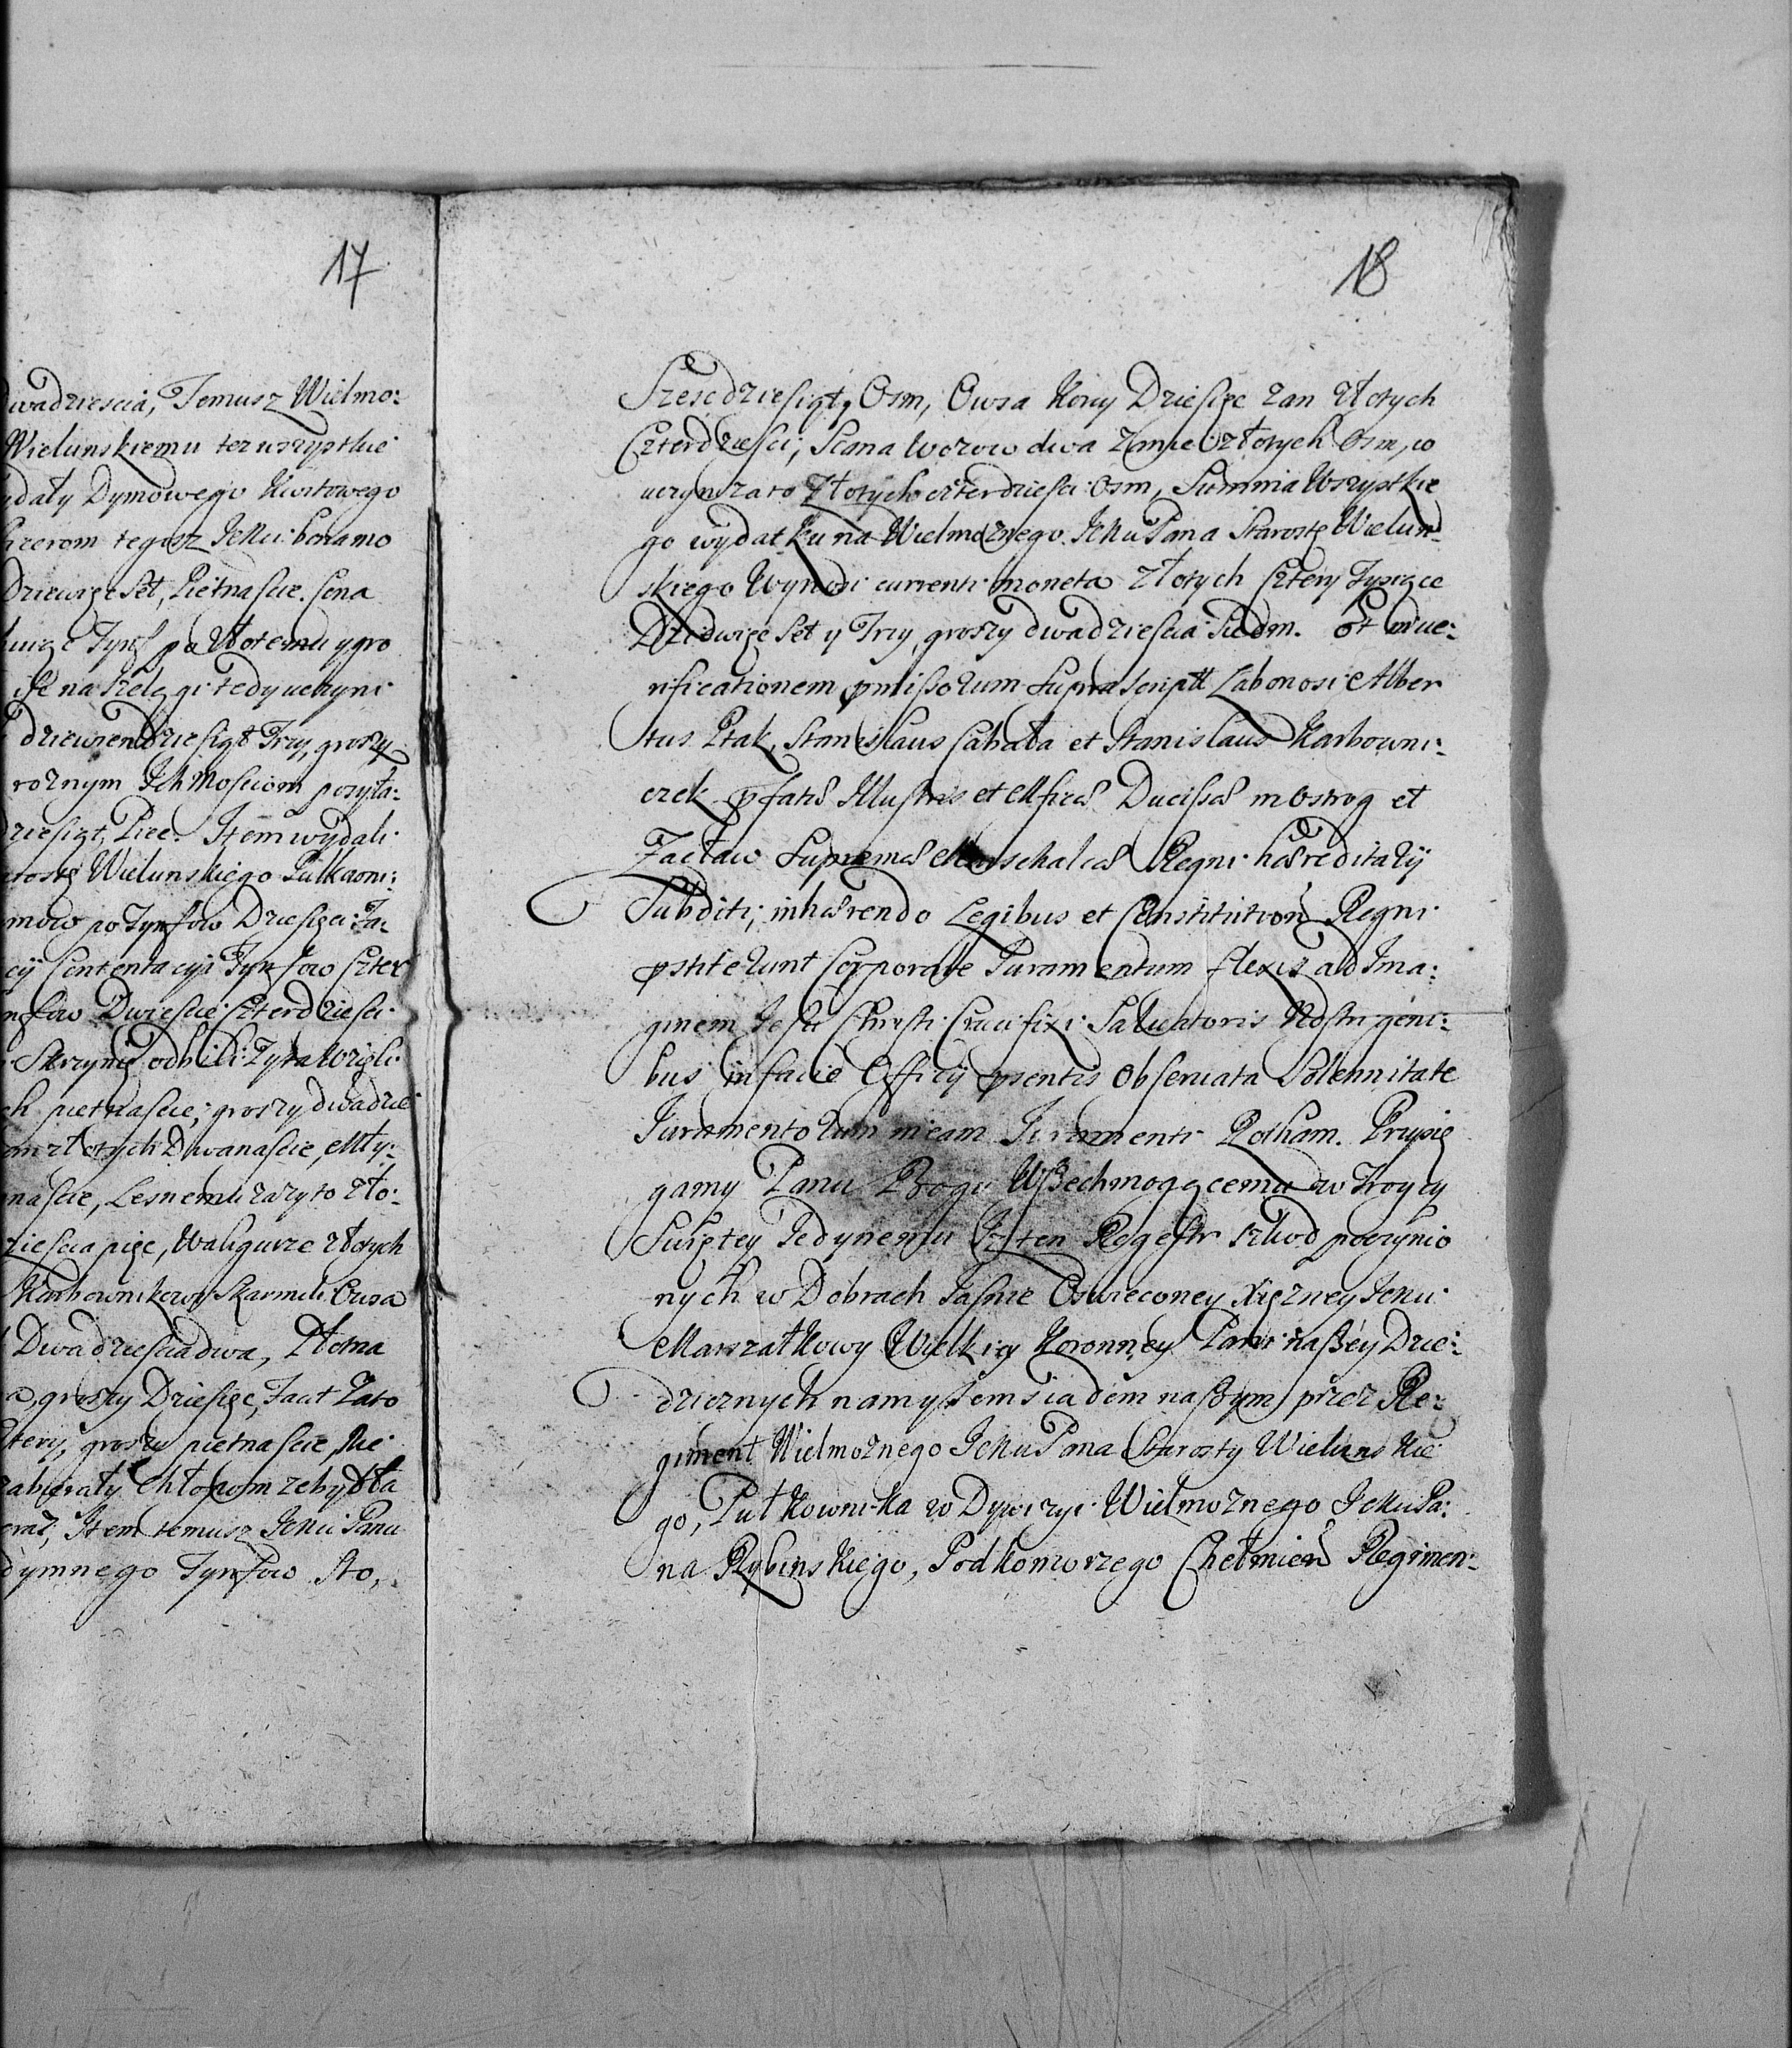 17
dwadziescia, Temusz Wielmo:
Wielunskiemu tez wszystkie
dały Dymowego Kwitowego
tegosz Jcmci
Dziewięcset, Pietnascie. Cena
Tynf po złotemu y gro
na Szelągi tedy uczyni
dziewiendziesiąt Trzy, groszy
roznym Ichmosciom posyła:
dziesiąt, Piec. Item wydali
Wielunskiego Pułkowni:
po Tynfow Dziesięci Ta:
Contentacyi Tynfow Czter
Dwiescie Czterdziesci
Skrzynię odbili Zyta Wzięli
pietnascie, groszy dwadzie
złotych Dwanascie, Mły:
nascie, Lesnemu za zyto zło:
dziescia pięc, Waligurze złotych
Karbownikowi Skarmili Owsa
Dwadziescia dwa, Płotna
groszy Dziesięc, Faut Zato
cztery, groszy pietnascie, Nie
zabierały Chłopom ze bydła
Item temusz Jcmci Panu
dymnego Tynfow Sto,
18
Szescdziesiąt, Osm, Owsa Korcy Dziesięc zan złotych
Czterdziesci, Siana wozow dwa zanie złotych Osm, co
uczyni zato złotych czterdziesci Osm, Summa Wszystkie
go wydatku na Wielmoznego Jcmci Pana Starostę Wielun
skiego Wynosi currenti moneta złotych Cztery Tysiące
Dziewięcset y Trzy, groszy dwadziescia Siedm. Et in ue:
rificationem pmissorum suprascriptt Labonosi Alber
tus Ptak, Stanislaus Cabała et Stanislaus Karbowni:
czek pfatæ Illustris et Mficæ Ducissæ in Ostrog et
Zasław Supremæ Marschalcæ Regni hæreditarij
Subditi, inhærendo Legibus et Constitution Regni
pstiterunt Corporale Juramentum flexis ad Ima:
ginem Jesu Christi Crucifixi Saluatoris Nostri geni:
bus in facie Officij psentis Obseruata Solennitate
Juramentorum in eam Juramenti Rotham. Przysię
gamy Panu Bogu Wszechmogącemu w Troycy
Swiętey Jedynemu Iz ten Regestr szkod poczynio
nych w Dobrach Jasnie Oswieconey Xięzney Jcmci
Marszałkowy Wielkiey Koronney Pani naszey Dzie:
dzicznych nam y Sąmsiadom naszym przez Re:
giment Wielmoznego Jcmci Pana Starosty Wielunskie
go, Pułkownika w Dywizyi Wielmoznego Jcmci Pa:
na Rybinskiego, Podkomorzego Chełmien Regimen: